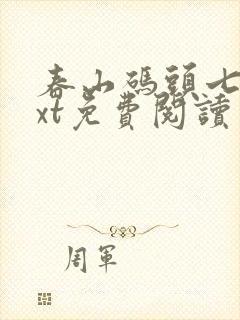 春山碼頭七
xt免費閱讀
周軍